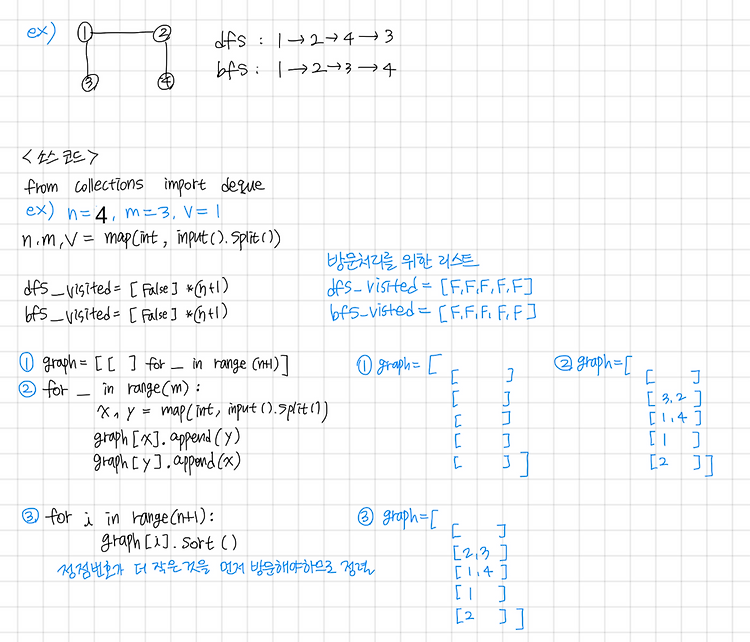 ex)
① ② ③ ④
dfs : 1→2→4→3
bfs : 1→2→3→4
<소스코드>
from collections import deque
ex) n=4, m=3, V=1
n,m,V = map(int, input().split())
방문처리를 위한 리스트
dfs_visited = [False] *(n+1)
dfs_visted = [F,F,F,F,F]
bfs_visited = [False] *(n+1)
bfs_visted = [F,F,F,F,F]
① graph = [[ ] for _ in range (n+1)]
② for _ in range(m) :
x, y = map(int, input().split())
graph[x].append(y)
graph[y].append(x)
① graph= [
[ ]
[ ]
[ ]
[ ]
[ ] ]
② graph=[
[ ]
[3,2]
[1,4]
[1 ]
[2 ]]
③ for i in range(n+1):
graph[i].sort()
정점번호가 더 작은것을 먼저 방문해야하므로 정렬
③ graph=[
[ ]
[2,3]
[1,4]
[1 ]
[2 ] ]